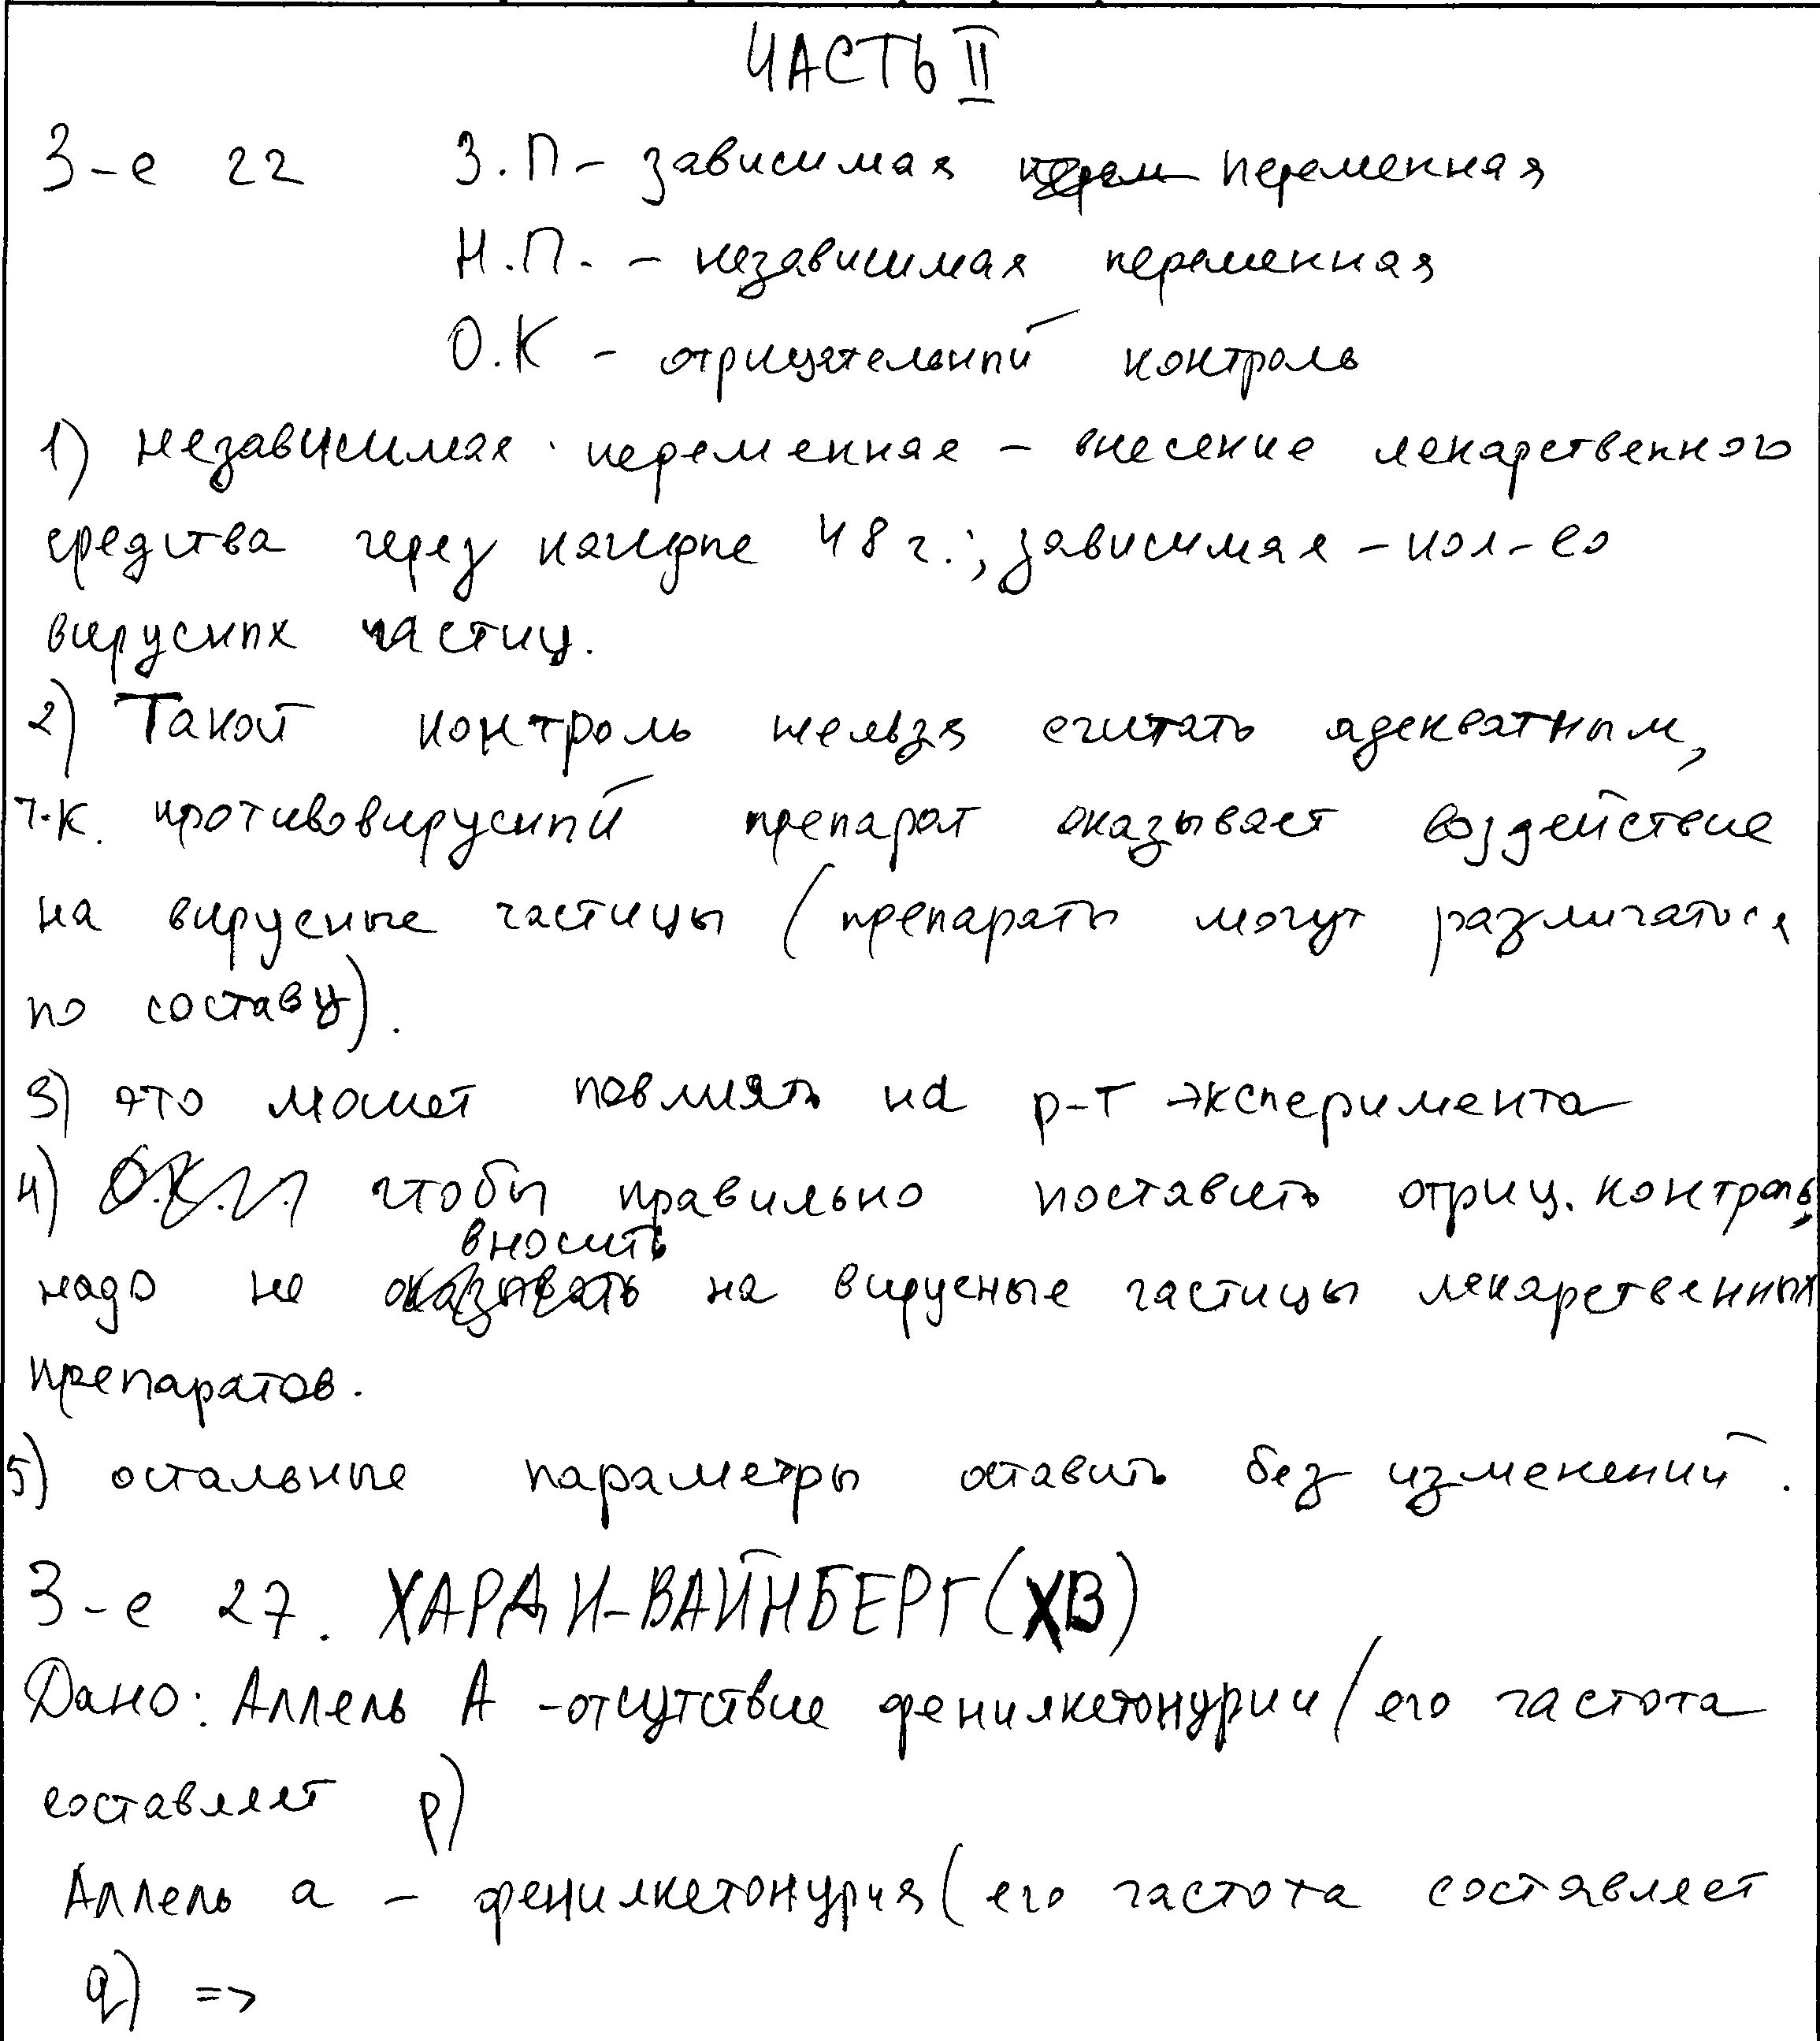 ЧАСТЬ II
З-е 22 З.П – зависимая перем переменная
Н.П. – независимая переменная
О.К – отрицательный контроль
1) независимая переменная – внесение лекарственного
средства через каждые 48 ч.; зависимая – кол-во
вирусных частиц.
2) Такой контроль нельзя считать адекватным,
т.к. противовирусный препарат оказывает воздействие
на вирусные частицы (препараты могут различаться
по составу).
3) это может повлиять на р-т эксперимента
4) чтобы правильно поставить отриц. контроль,
вносить
надо не оказывать на вирусные частицы лекарственных
препаратов.
5) остальные параметры оставить без изменений.
З-е 27. ХАРДИ-ВАЙНБЕРГ (ХВ)
Дано: Аллель А - отсутствие фенилкетонурии (его частота
составляет p)
Аллель а – фенилкетонурия (его частота составляет
q) =>